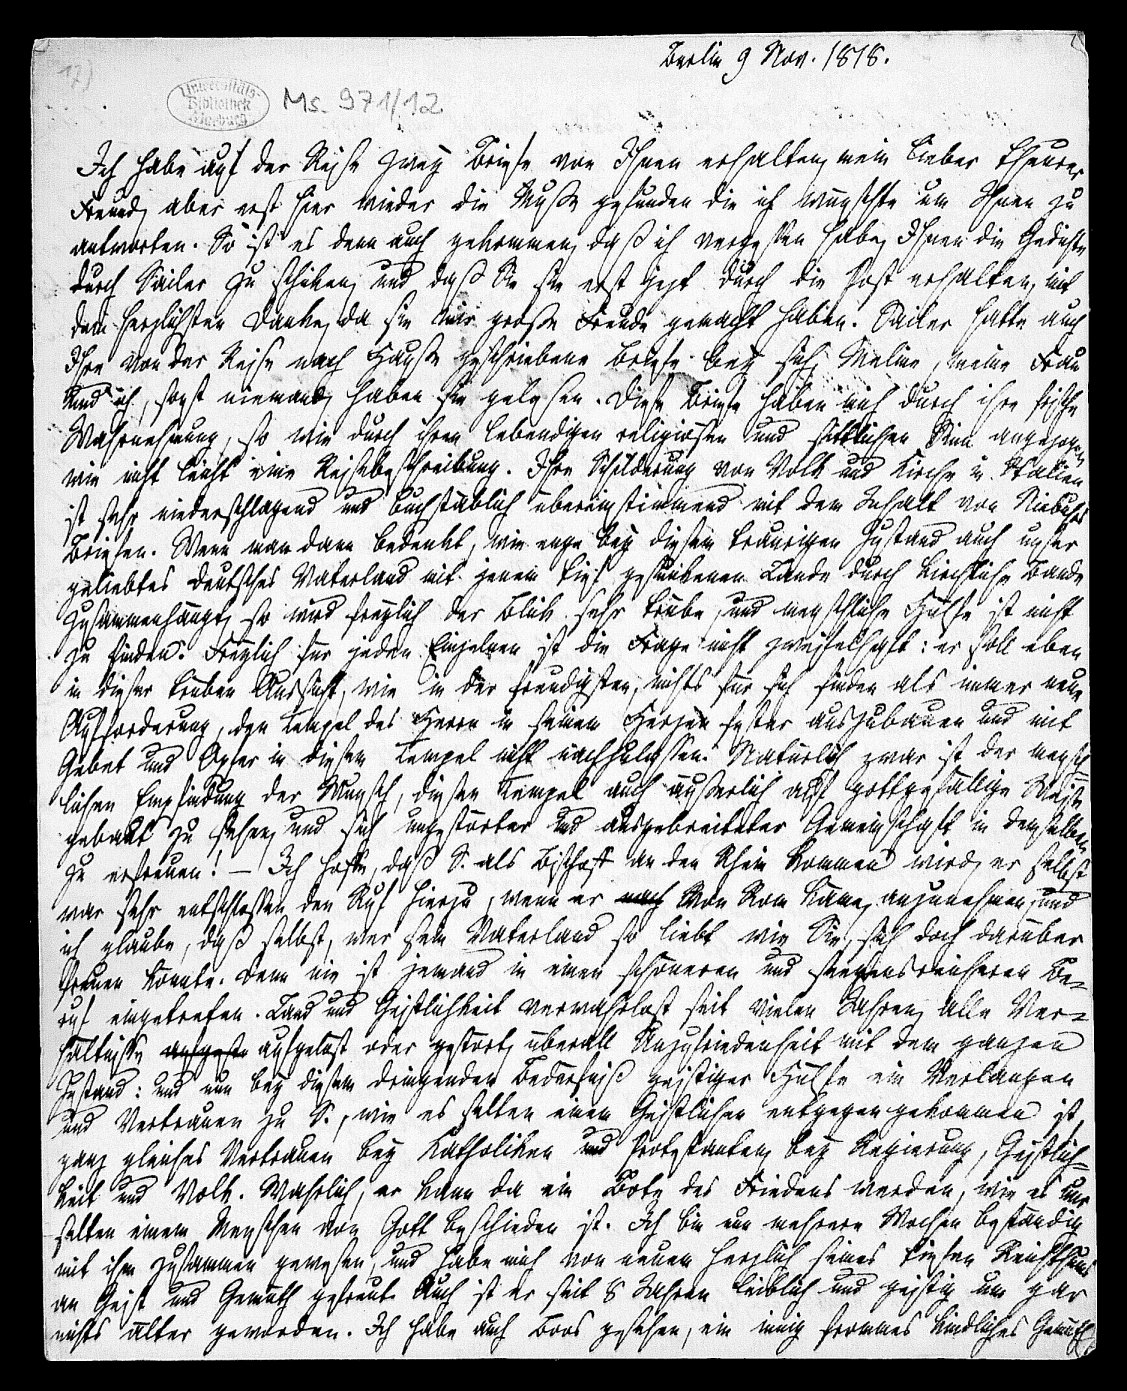 17)
Universitäts-
Bibliothek
Marburg
Ms. 971/12
Berlin 9 Nov. 1818.
Ich habe auf der Reise zwey Briefe von Ihnen erhalten, mein lieber theurer
Freund, aber erst hier wieder die Muße gefunden die ich wünschte um Ihnen zu
antworten. So ist es denn auch gekommen, daß ich vergessen habe, Ihnen die Gedichte
durch Sailer zu schicken, und daß Sie sie erst jezt durch die Post erhalten, mit
dem herzlichsten Danke, da sie mir große Freude gemacht haben. Sailer hatte auch
Ihre von der Reise nach Hause geschriebene Briefe bey sich, Meline, meine Frau
und ich, sonst niemand, haben sie gelesen. Diese Briefe haben mich durch ihre frische
Wahrnehmung, so wie durch ihren lebendigen religiösen und sittlichen Sinn angezogen
wie nicht leicht eine Reisebeschreibung. Ihre Schilderung von Volk und Kirche in Italien
ist sehr niederschlagend und buchstäblich übereinstimmend mit dem Inhalt von Niebuhrs
Briefen. Wenn man dann bedenkt, wie enge bey diesem traurigen Zustand auch unser
geliebtes deutsches Vaterland mit jenem tief gesunkenen Lande durch kirchliche Bande
zusammenhängt, so wird freylich der Blick sehr trübe, und menschliche Hülfe ist nicht
zu finden. Freylich für jeden Einzelnen ist die Frage nicht zweifelhaft: er soll eben
in dieser trüben Aussicht, wie in der freudigsten, nichts für sich finden als immer neue
Aufforderung, den Tempel des Herrn in seinem Herzen fester auszubauen und mit
Gebet und Opfer in diesem Tempel nicht nachzulassen. Natürlich zwar ist der mensch-
lichen Empfindung der Wunsch, diesen Tempel auch äußerlich auf gottgefällige Weise
gebaut zu sehen, und sich ungestörter und ausgebreiteter Gemeinschaft in demselben
zu erfreuen! – Ich hoffe, daß S. als Bischoff an den Rhein kommen wird, er selbst
war sehr entschlossen den Ruf hierzu, wenn er nach von Rom käme, anzunehmen, und
ich glaube, daß selbst, wer sein Vaterland so liebt wie Sie, sich doch darüber
freuen könnte. Denn nie ist jemand in einen schöneren und seegensreicheren Be-
ruf eingetreten. Land und Geistlichkeit verwahrlost seit vielen Jahren, alle Ver-
hältnisse aufgelöst oder gestört, überall Unzufriedenheit mit dem ganzen
Zustand: und nun bey diesem dringenden Bedürfniß geistiger Hülfe ein Verlangen
und Vertrauen zu S., wie es selten einem Geistlichen entgegen gekommen ist,
ganz gleiches Vertrauen bey Katholiken und Protestanten, bey Regierung, Geistlich-
keit und Volk. Wahrlich, er kann da ein Bote des Friedens werden, wie es nur
selten einem Menschen von Gott beschieden ist. Ich bin nun mehrere Wochen beständig
mit ihm zusammen gewesen, und habe mich von neuem herzlich seines tiefen Reichthums
an Geist und Gemüth gefreut. Auch ist er seit 8 Jahren leiblich und geistig um gar
nichts älter geworden. Ich habe auch Boos gesehen, ein innig frommes kindliches Gemüth